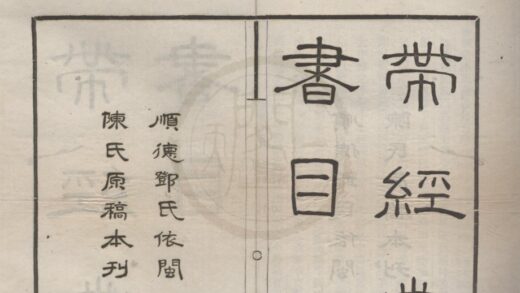 帶經
書目
順德鄧氏依閩
陳氏原稿本刊